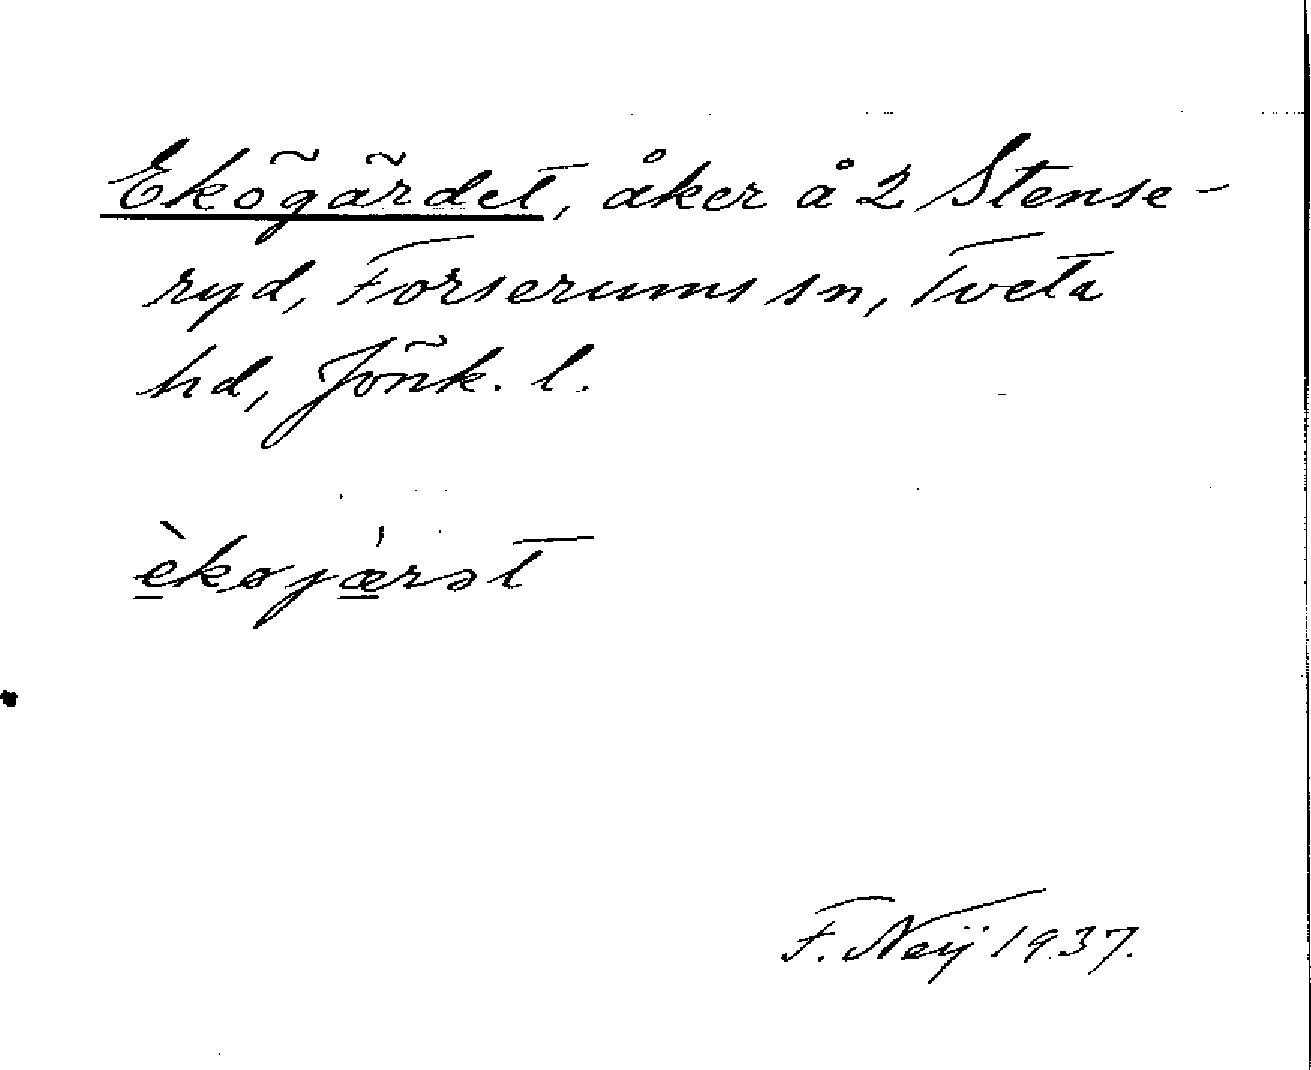 Ekögärdet, åker å 2 Stense-
ryd, Forserums sn, Tveta
hd, Jönk. l.
èkøjǽrət
F. Neij 1937.